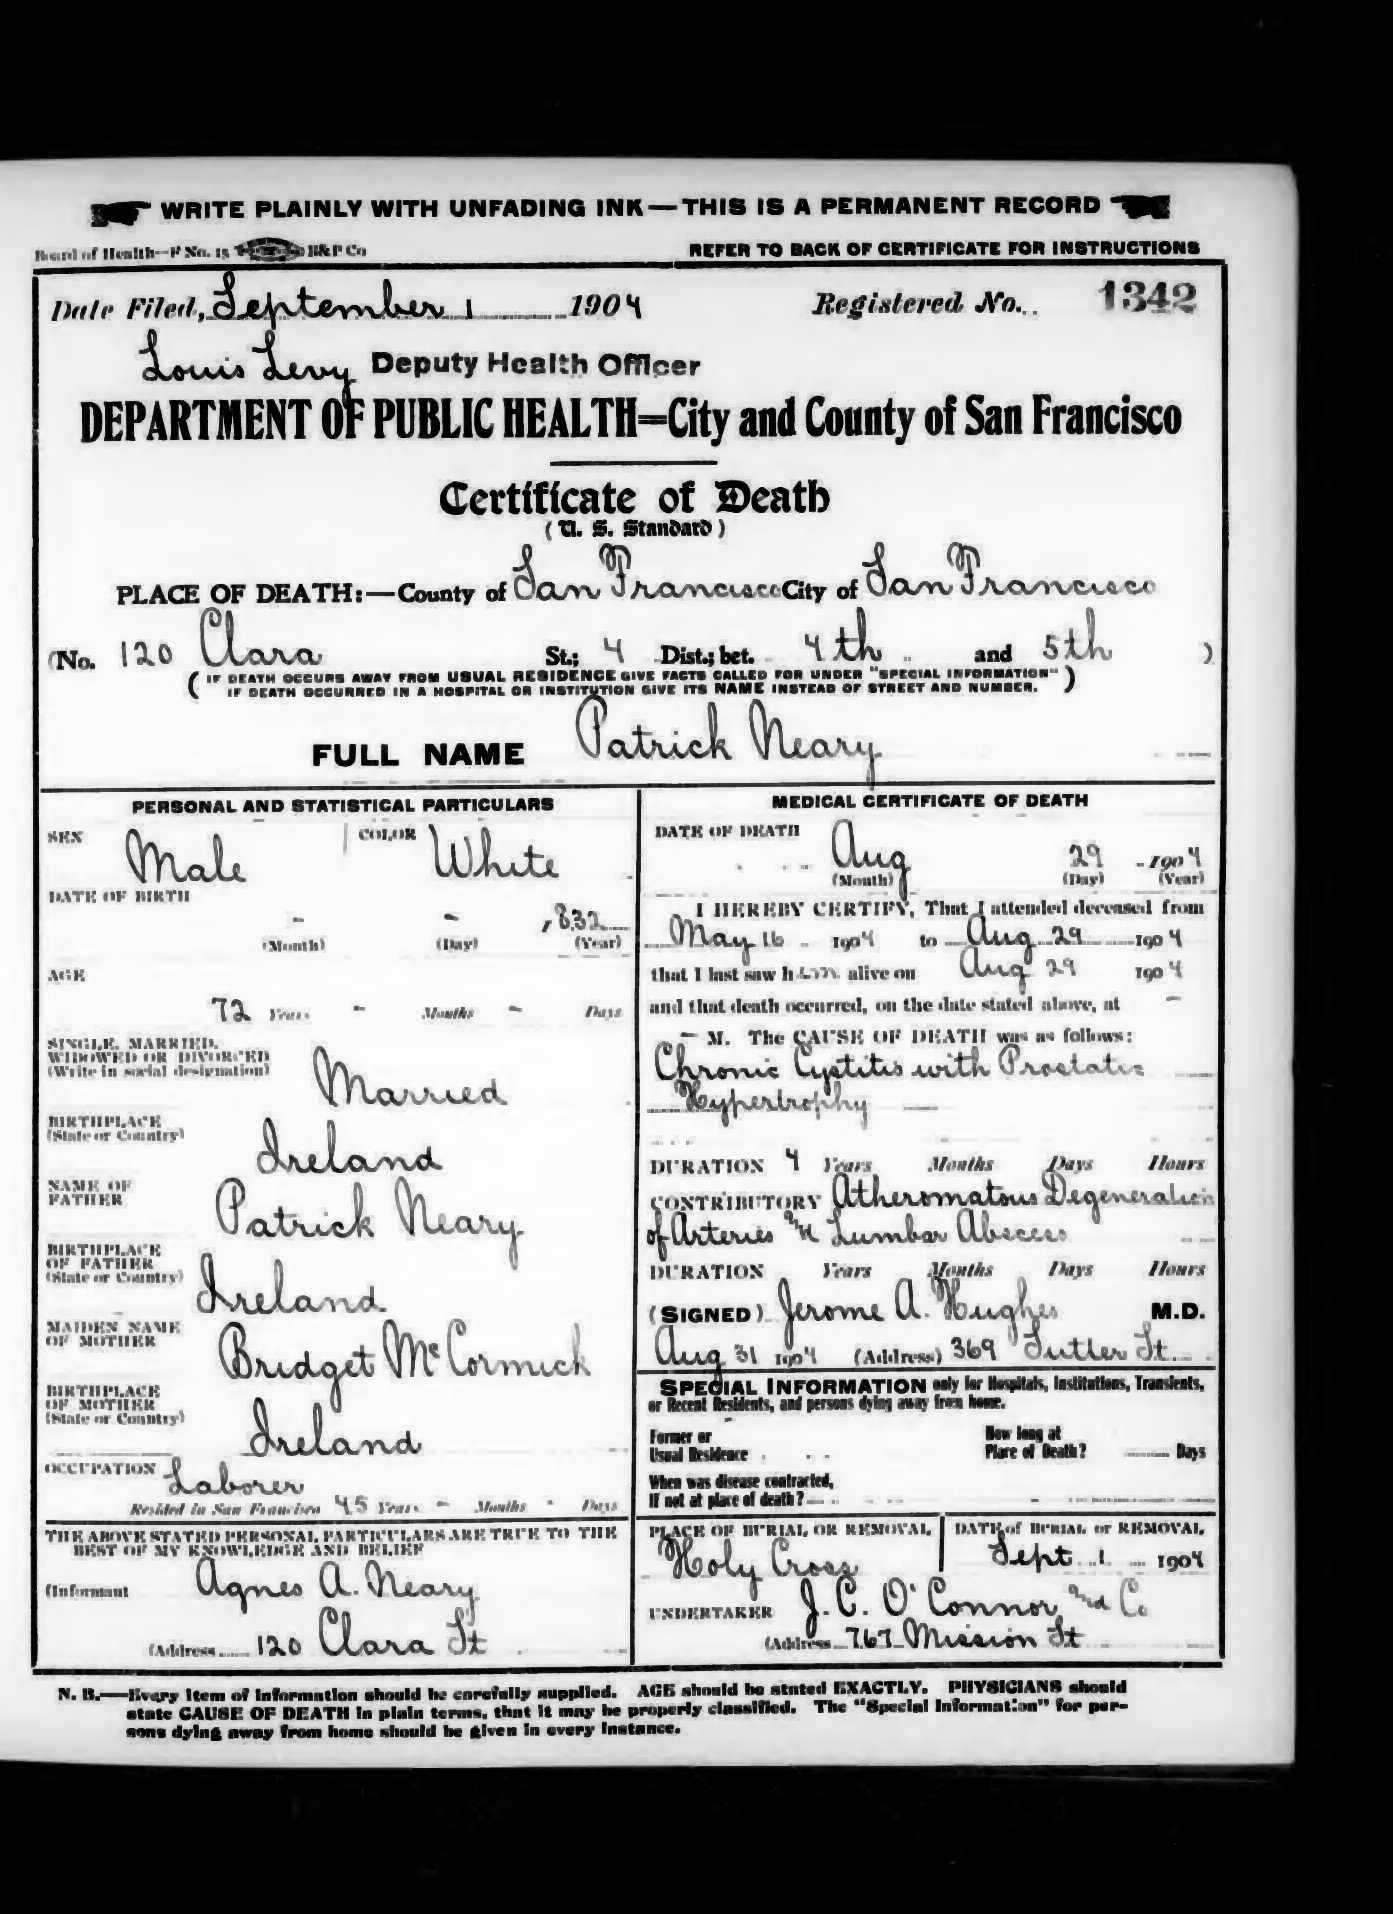 WRITE PLAINLY WITH UNFADING INK—THIS IS A PERMANENT RECORD
Board of Health—F No. 15 B&P Co REFER TO BACK OF CERTIFICATE FOR INSTRUCTIONS
Date Filed, September 1 1904 Registered No. 1342
Louis Levy Deputy Health Officer
DEPARTMENT OF PUBLIC HEALTH=City and County of San Francisco
Certificate of Death
(U. S. Standard)
PLACE OF DEATH:—County of San Francisco City of San Francisco
(No. 120 Clara St.; 4 Dist.; bet. 4th and 5th )
(IF DEATH OCCURS AWAY FROM USUAL RESIDENCE GIVE FACTS CALLED FOR UNDER "SPECIAL INFORMATION"
IF DEATH OCCURRED IN A HOSPITAL OR INSTITUTION GIVE ITS NAME INSTEAD OF STREET AND NUMBER.)
FULL NAME Patrick Neary
PERSONAL AND STATISTICAL PARTICULARS
SEX Male COLOR White
DATE OF BIRTH
- - 1832
(Month) (Day) (Year)
AGE
72 Years - Months - Days
SINGLE, MARRIED,
WIDOWED OR DIVORCED
(Write in social designation) Married
BIRTHPLACE
(State or Country) Ireland
NAME OF
FATHER Patrick Neary
BIRTHPLACE
OF FATHER
(State or Country) Ireland
MAIDEN NAME
OF MOTHER Bridget McCormick
BIRTHPLACE
OF MOTHER
(State or Country) Ireland
OCCUPATION Laborer
Resided in San Francisco 45 Years - Months - Days
THE ABOVE STATED PERSONAL PARTICULARS ARE TRUE TO THE
BEST OF MY KNOWLEDGE AND BELIEF
(Informant Agnes A. Neary
(Address 120 Clara St
MEDICAL CERTIFICATE OF DEATH
DATE OF DEATH
Aug 29 1904
(Month) (Day) (Year)
I HEREBY CERTIFY, That I attended deceased from
May 16 1904 to Aug 29 1904
that I last saw him alive on Aug 29 1904
and that death occurred, on the date stated above, at -
- M. The CAUSE OF DEATH was as follows:
Chronic Cystitis with Prostatic
Hypertrophy
DURATION 4 Years Months Days Hours
CONTRIBUTORY Atheromatous Degeneration
of Arteries and Lumbar Abscess
DURATION Years Months Days Hours
(SIGNED) Jerome A. Hughes M.D.
Aug 31 1904 (Address) 369 Sutter St
SPECIAL INFORMATION only for Hospitals, Institutions, Transients,
or Recent Residents, and persons dying away from home.
Former or
Usual Residence
How long at
Place of Death? Days
When was disease contracted,
If not at place of death?
PLACE OF BURIAL OR REMOVAL
Holy Cross
DATE of BURIAL or REMOVAL
Sept 1 1904
UNDERTAKER J. C. O'Connor and Co
(Address 767 Mission St
N. B.—Every item of information should be carefully supplied. AGE should be stated EXACTLY. PHYSICIANS should
state CAUSE OF DEATH in plain terms, that it may be properly classified. The "Special Information" for per-
sons dying away from home should be given in every instance.